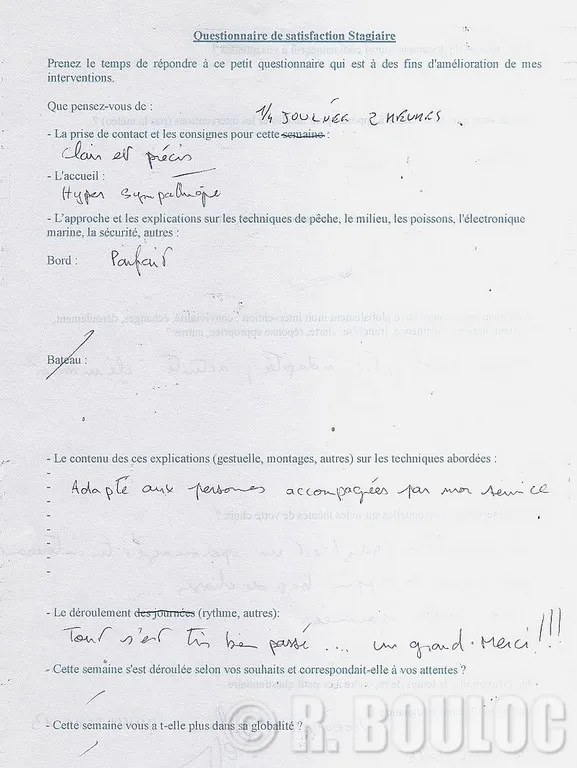 Questionnaire de satisfaction Stagiaire
Prenez le temps de répondre à ce petit questionnaire qui est à des fins d'amélioration de mes
interventions.
Que pensez-vous de :
1/4 JOURNÉE 2 HEURES
- La prise de contact et les consignes pour cette semaine :
Clair et précis
- L'accueil :
Hyper sympathique
- L'approche et les explications sur les techniques de pêche, le milieu, les poissons, l'électronique
marine, la sécurité, autres :
Bord : Parfait
Bateau :
- Le contenu des ces explications (gestuelle, montages, autres) sur les techniques abordées :
- Adapté aux personnes accompagnées par mon service
-
-
-
-
-
-
- Le déroulement des journées (rythme, autres):
Tout s'est très bien passé .... un grand Merci !!!
- Cette semaine s'est déroulée selon vos souhaits et correspondait-elle à vos attentes ?
- Cette semaine vous a t-elle plus dans sa globalité ?
© R. BOULOC